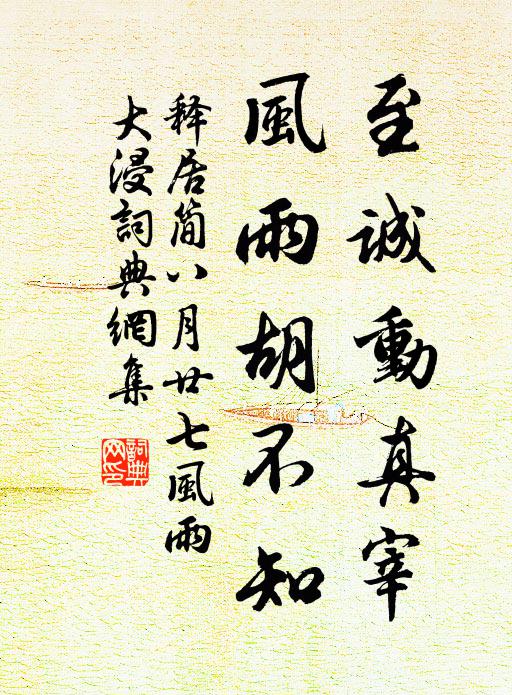 至誠動真宰
風雨胡不知
释居簡八月廿七風雨
大浸詞典網集
詞典网印